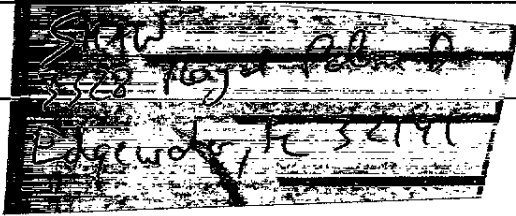 SHAW
3528 Royal Palm Dr
Edgewater, FL 32141